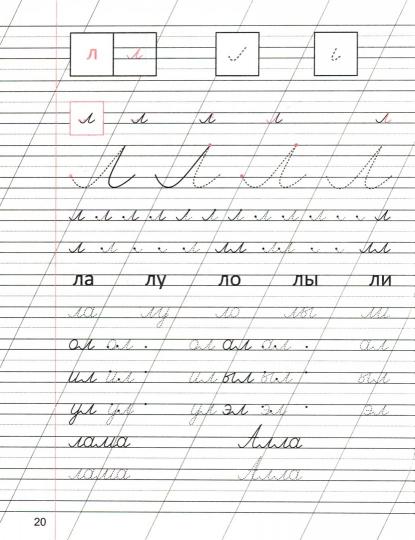 л л
л л л л л
Л Л Л Л
л л л л л л л л л л л л
л л л лл лл лл
ла лу ло лы ли
ла лу ло лы ли
ол ол ол ал ал ал
ил ил ил ыл ыл ыл
ул ул ул эл эл эл
лама Алла
лама Алла
20